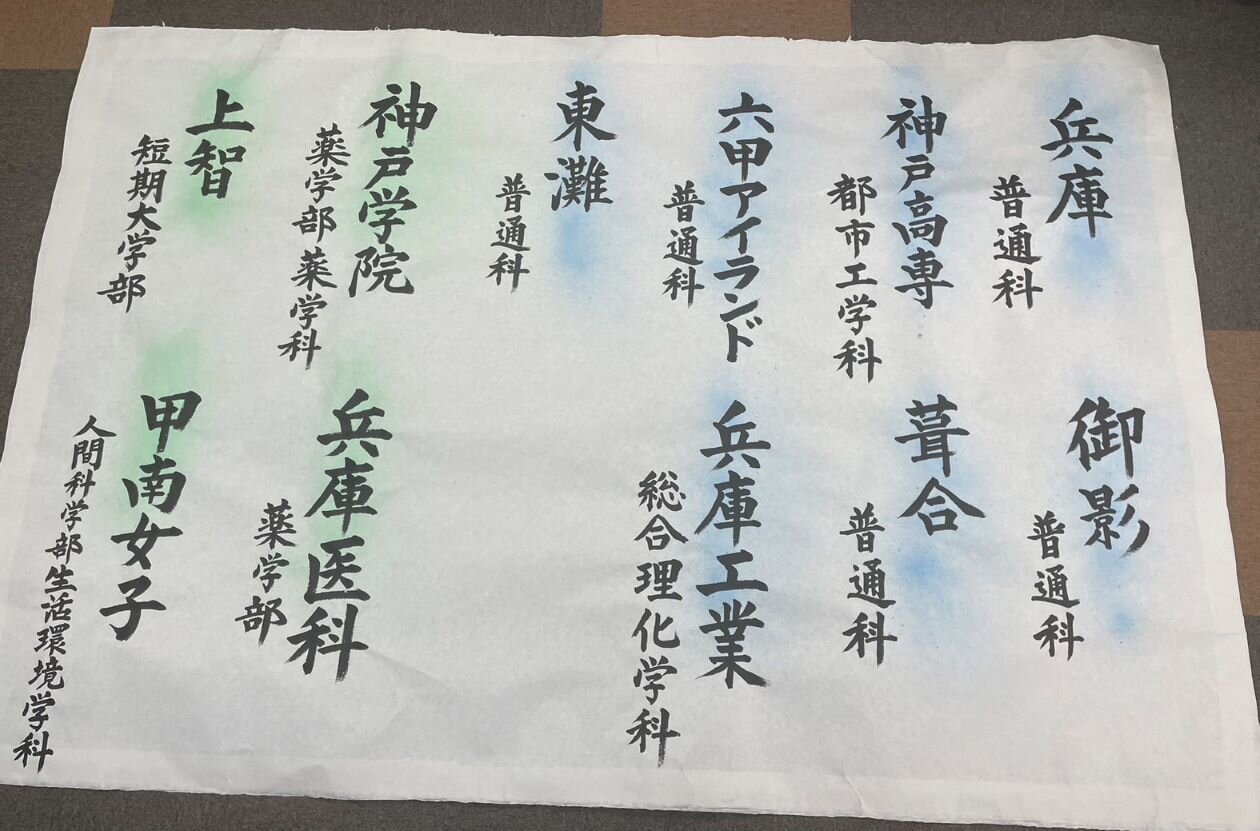 兵庫
普通科
御影
普通科
神戸高専
都市工学科
葺合
普通科
六甲アイランド
普通科
兵庫工業
総合理化学科
東灘
普通科
神戸学院
薬学部薬学科
兵庫医科
薬学部
上智
短期大学部
甲南女子
人間科学部生活環境学科